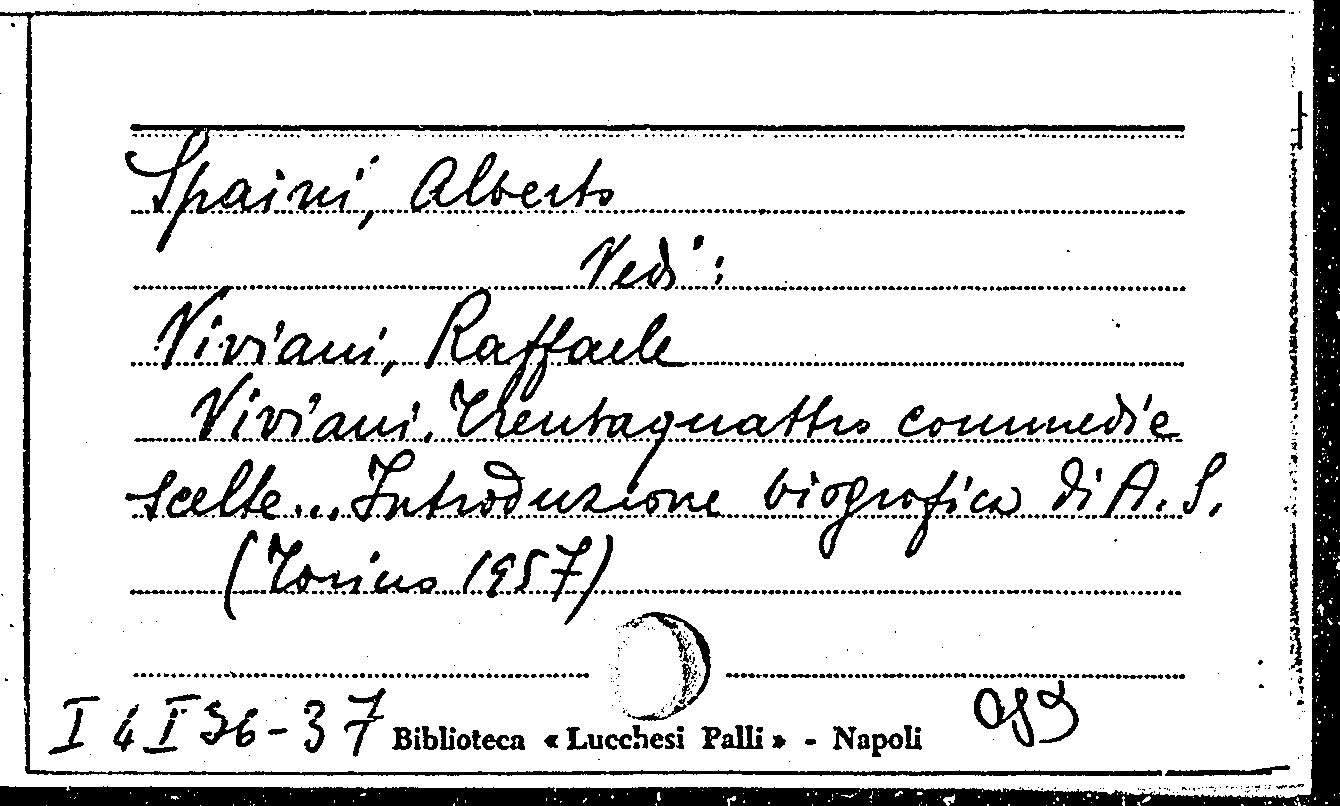 Spaini, Alberto
Vedi:
Viviani, Raffaele
Viviani. Trentaquattro commedie
scelte... Introduzione biografica di A. S.
(Torino 1957)
I 4 I 36-37 Biblioteca « Lucchesi Palli » - Napoli